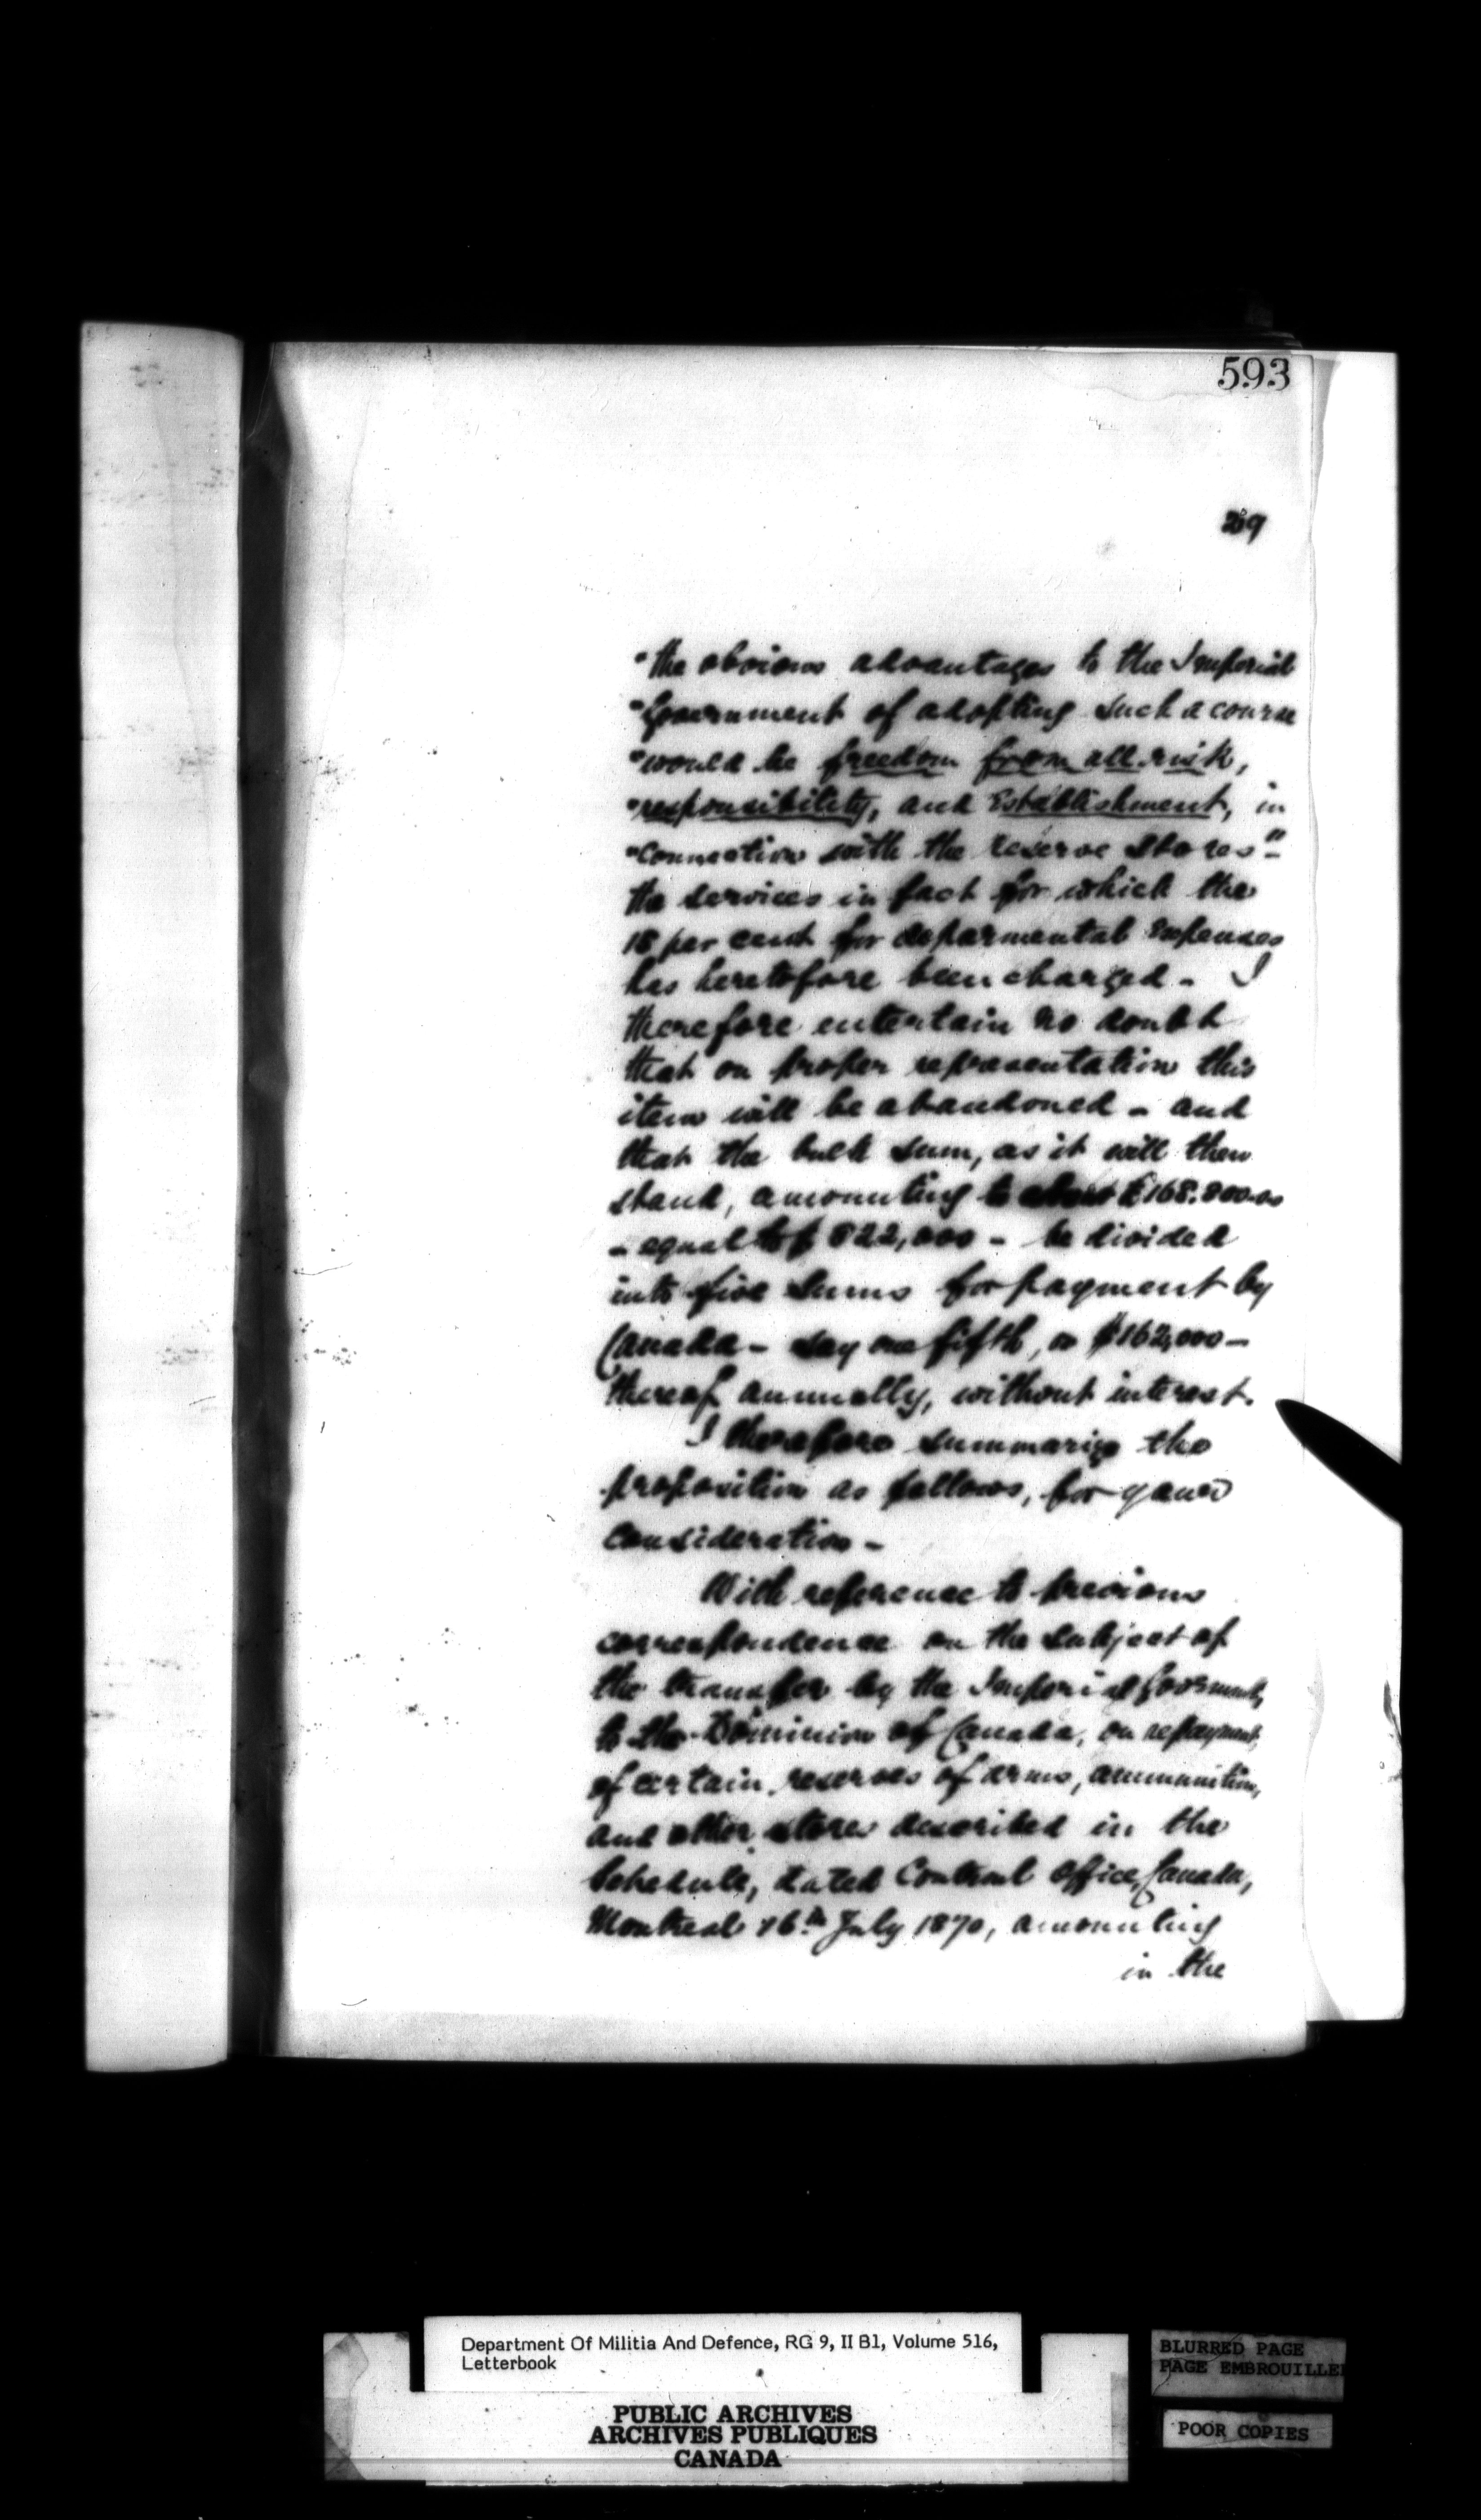 593
29
"the obvious advantages to the Imperial
"Government of adopting such a course
"would be freedom from all risk,
"responsibility, and Establishment, in
"connection with the reserve stores"-
the services in fact for which the
18 per cent for deparmental expenses
has heretofore been charged - I
therefore entertain no doubt
that on proper representation this
item will be abandoned - and
that the bulk sum, as it will then
stand, amounting to about £168.800
- equal to $ 822,000 - be divided
into five sums for payment by
Canada - say one fifth, or $162,000 -
thereof annually, without interest.
I therefore summarize the
proposition as follows, for your
consideration -
With reference to previous
correspondence on the subject of
the transfer by the Imperial Government,
to the Dominion of Canada, on repayment,
of certain reserves of arms, ammunition,
and other stores described in the
Schedule, dated Control Office, Canada,
Montreal 16th July 1870, amounting
in the
Department Of Militia And Defence, RG 9, II B1, Volume 516,
Letterbook
PUBLIC ARCHIVES
ARCHIVES PUBLIQUES
CANADA
BLURRED PAGE
PAGE EMBROUILLEE
POOR COPIES